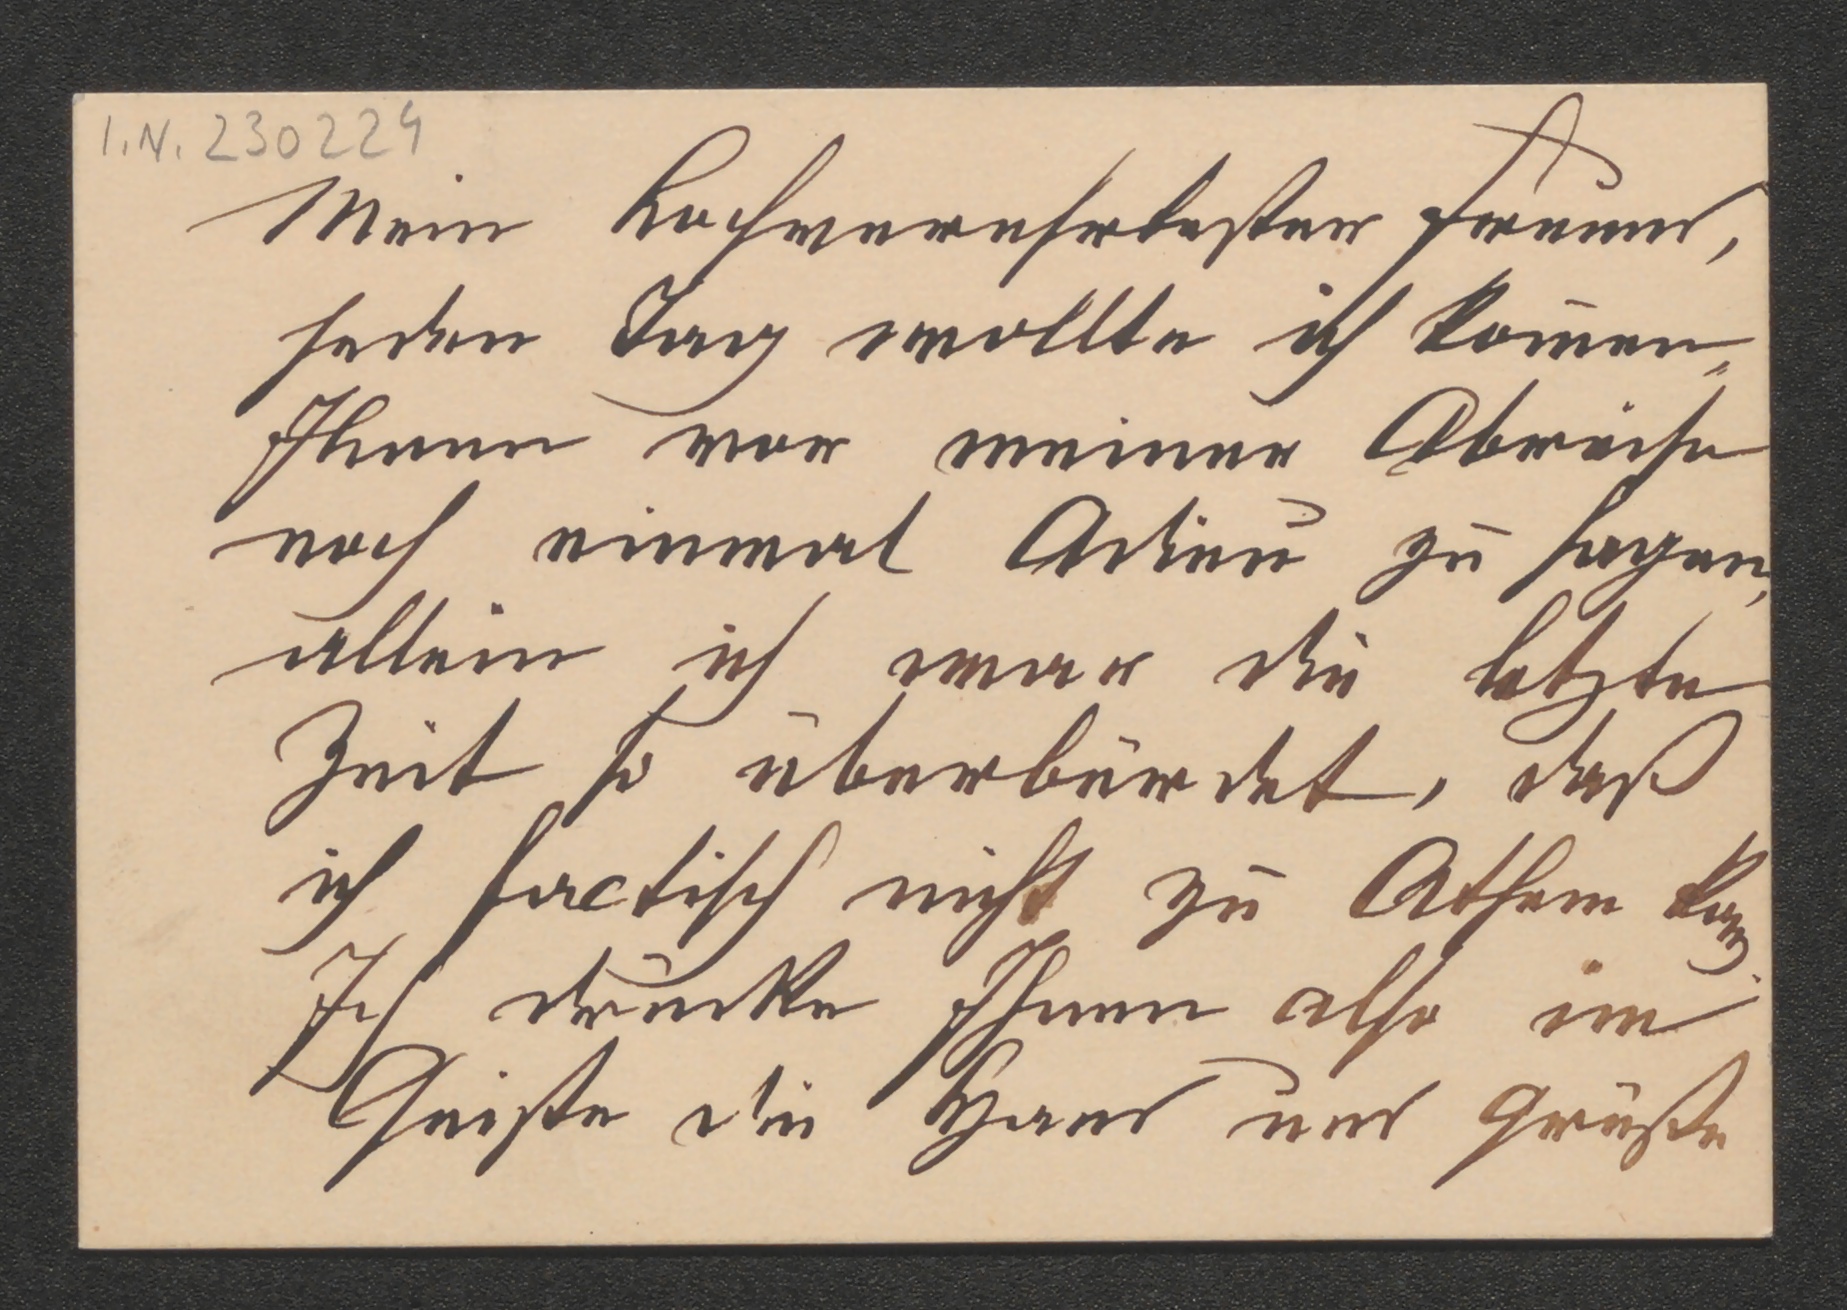 I.N. 230224
Mein hochverehrtester Freund,
jeden Tag wollte ich kom̄en,
Ihnen vor meiner Abreise
noch einmal Adieu zu sagen,
allein ich war die letzte
Zeit so überbürdet, daß
ich factisch nicht zu Athem kam̄
Ich drücke Ihnen also im
Geiste die Hand und grüße